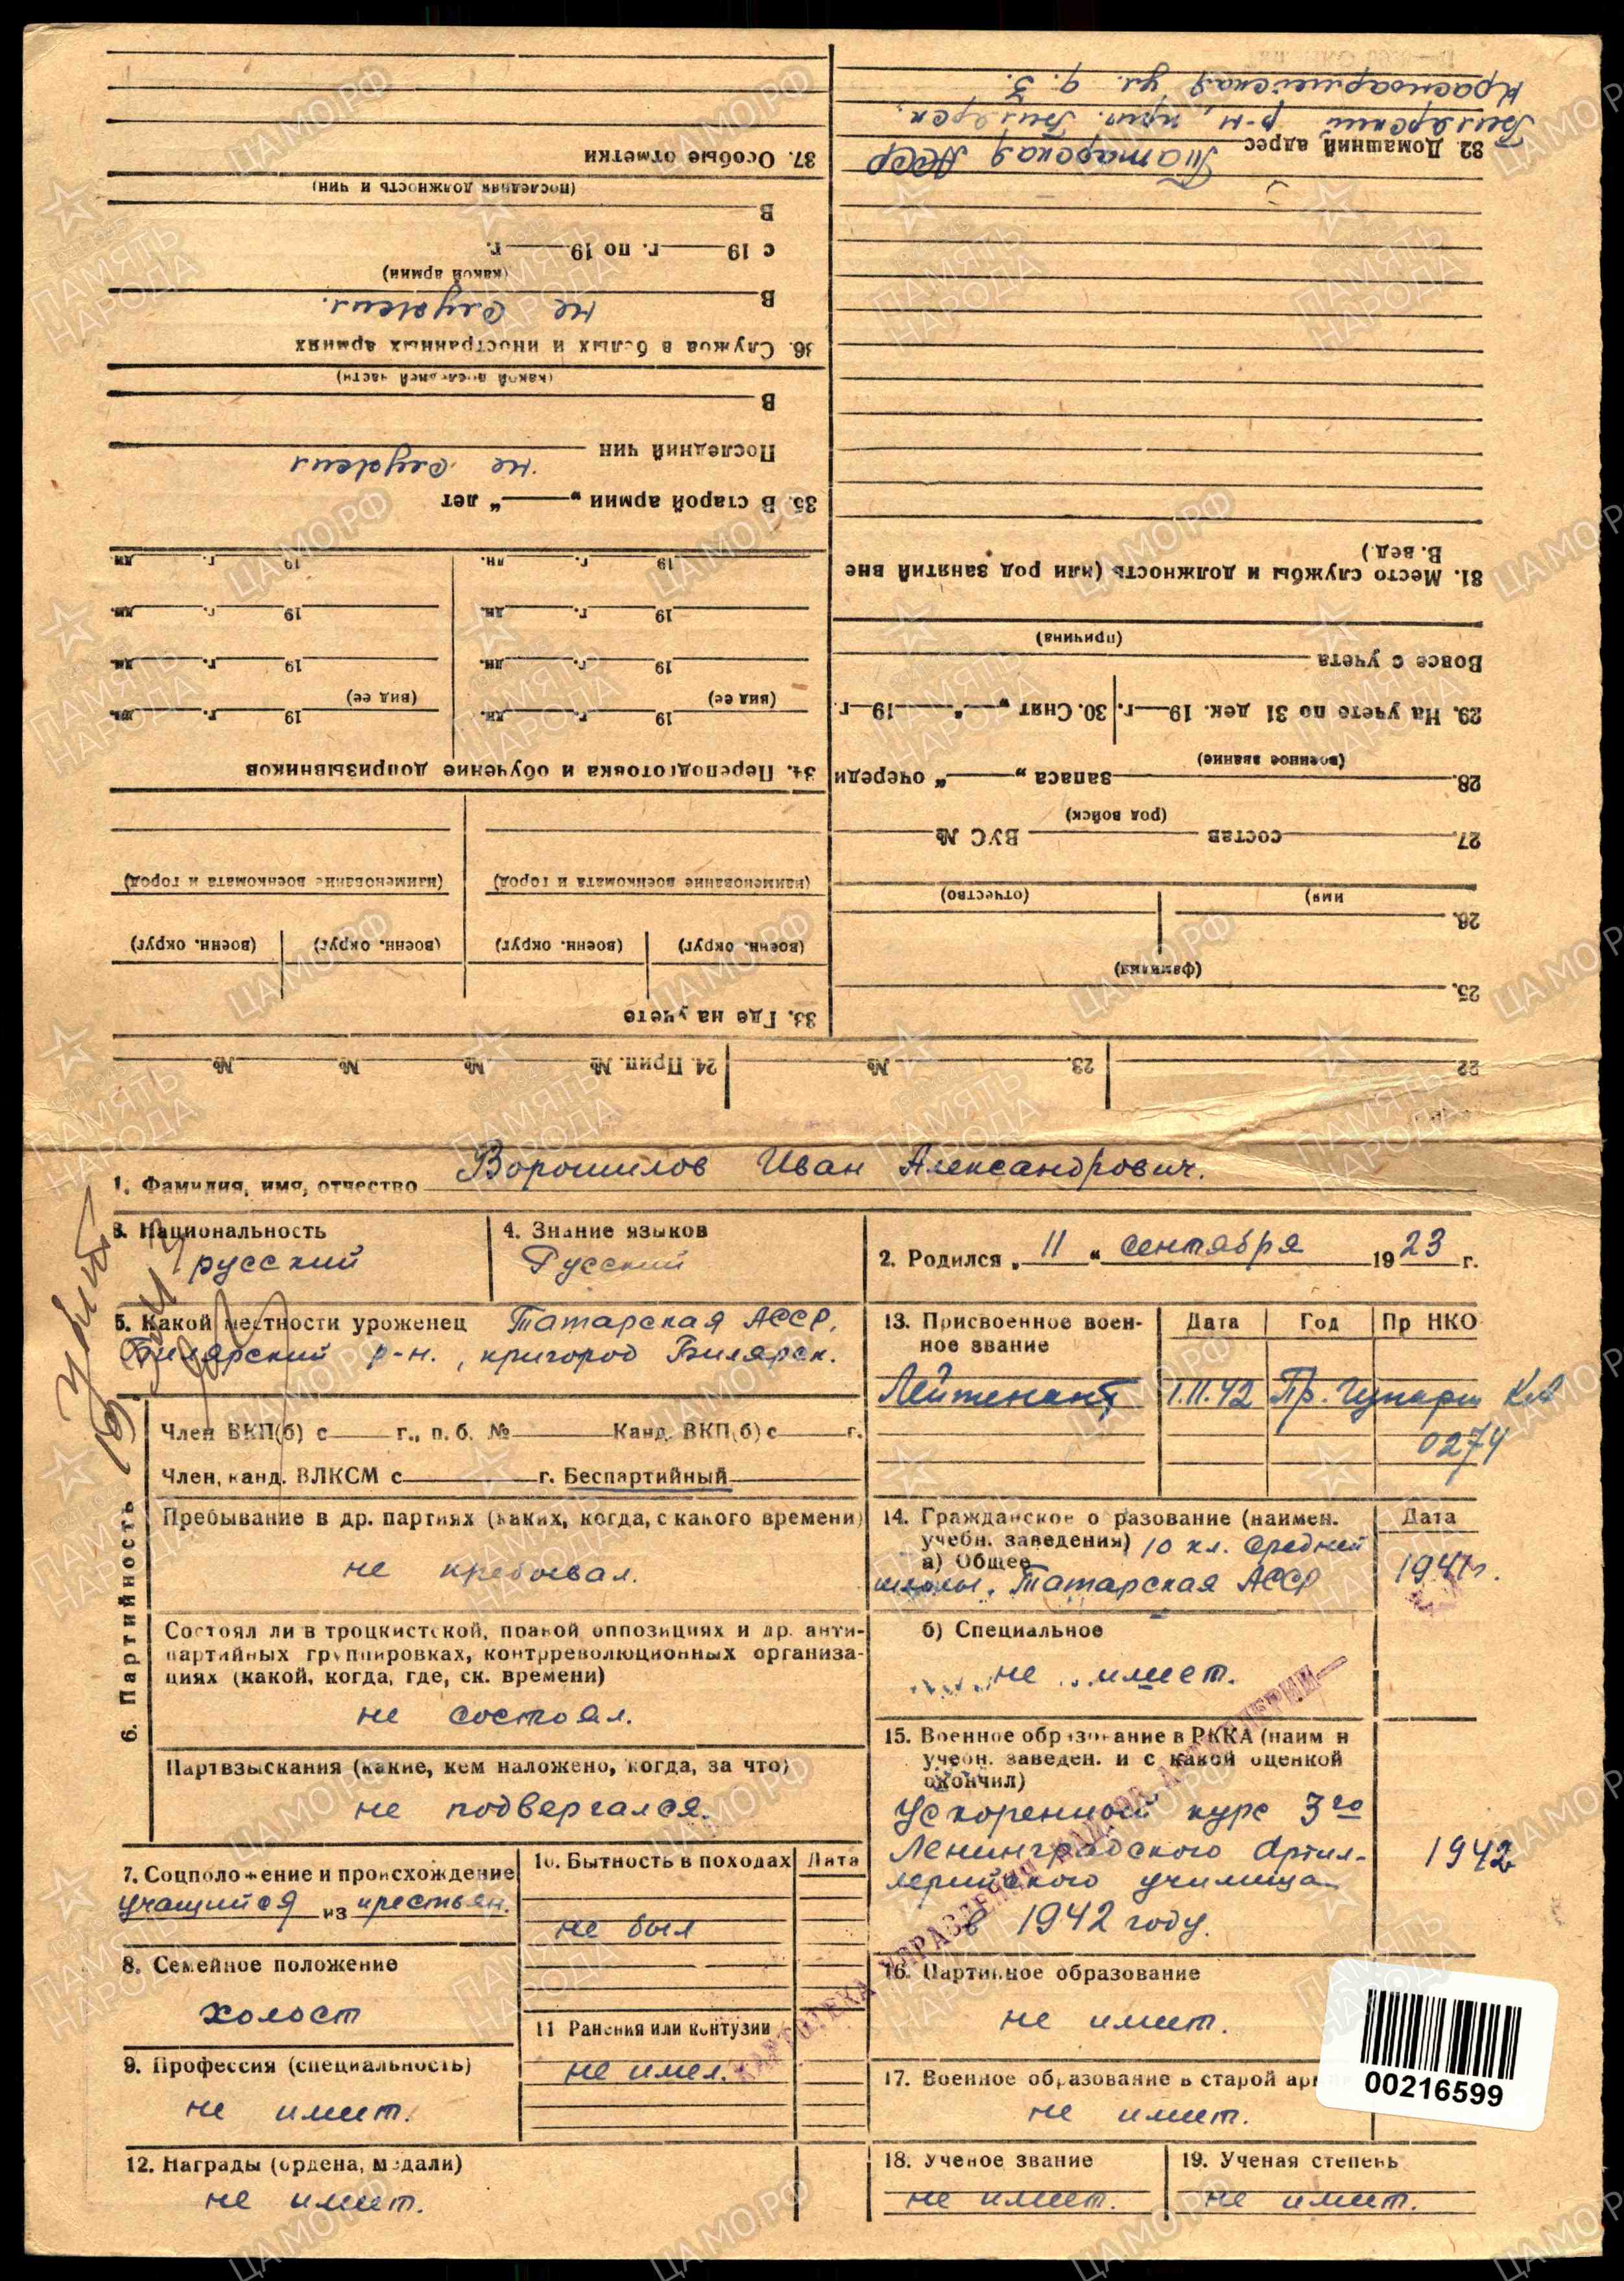 1. Фамилия, имя, отчество Ворошилов Иван Александрович.
3. Национальность
русский
4. Знание языков
Русский
2. Родился „ 11 “ сентября 1923 г.
5. Какой местности уроженец Татарская АССР,
Билярский р-н., пригород Билярск.
13. Присвоенное воен-
ное звание
Дата Год Пр НКО
Лейтенант 1.11.42 Пр.
0274
6. Партийность
Член ВКП(б) с г., п. б. № Канд. ВКП(б) с г.
Член, канд. ВЛКСМ с г. Беспартийный
Пребывание в др. партиях (каких, когда, с какого времени)
не пребывал.
Состоял ли в троцкистской, правой оппозициях и др. анти-
партийных группировках, контрреволюционных организа-
циях (какой, когда, где, ск. времени)
не состоял.
Партвзыскания (какие, кем наложено, когда, за что)
не подвергался.
14. Гражданское образование (наимен.
учебн. заведения) 10 кл. средней
а) Общее
школы. Татарская АССР
Дата
1941г.
б) Специальное
не имеет.
15. Военное образование в РККА (наим и
учебн. заведен. и с какой оценкой
окончил)
Ускоренный курс 3го
Ленинградского Артил-
лерийского училища
в 1942 году.
1942
7. Соцположение и происхождение
учащийся из крестьян.
8. Семейное положение
холост
9. Профессия (специальность)
не имеет.
10. Бытность в походах Дата
не был
11 Ранения или контузии
не имел.
12. Награды (ордена, медали)
не имеет.
16. Партийное образование
не имеет.
17. Военное образование в старой
не имеет.
18. Ученое звание
не имеет.
19. Ученая степень
не имеет.
00216599
22 23. № 24. Прип. № № № №
25.
(фамилия)
26.
имя) (отчество)
27. состав ВУС №
(род войск)
28. запаса „ “ очереди
(военное звание)
29. На учете по 31 дек. 19 г. 30. Снят „ “ 19 г.
Вовсе с учета
(причина)
31. Место службы и должность (или род занятий вне
В. вед.)
32. Домашний адрес Татарская АССР
Билярский р-н, приг. Билярск.
Красноармейская ул. д. 3.
33. Где на учете
(военн. округ) (военн. округ) (военн. округ) (военн. округ)
(наименование военкомата и город) (наименование военкомата и город)
34. Переподготовка и обучение допризывников
19 г. дн. 19 г. дн.
(вид ее) (вид ее)
19 г. дн. 19 г. дн.
19 г. дн. 19 г. дн.
19 г. дн. 19 г. дн.
35. В старой армии „ “ лет
не служил
Последний чин
В
(какой последней части)
36. Служба в белых и иностранных армиях
В не служил.
(какой армии)
с 19 г. по 19 г.
В
(последняя должность и чин)
37. Особые отметки
ПАМЯТЬ НАРОДА
ЦАМО.РФ